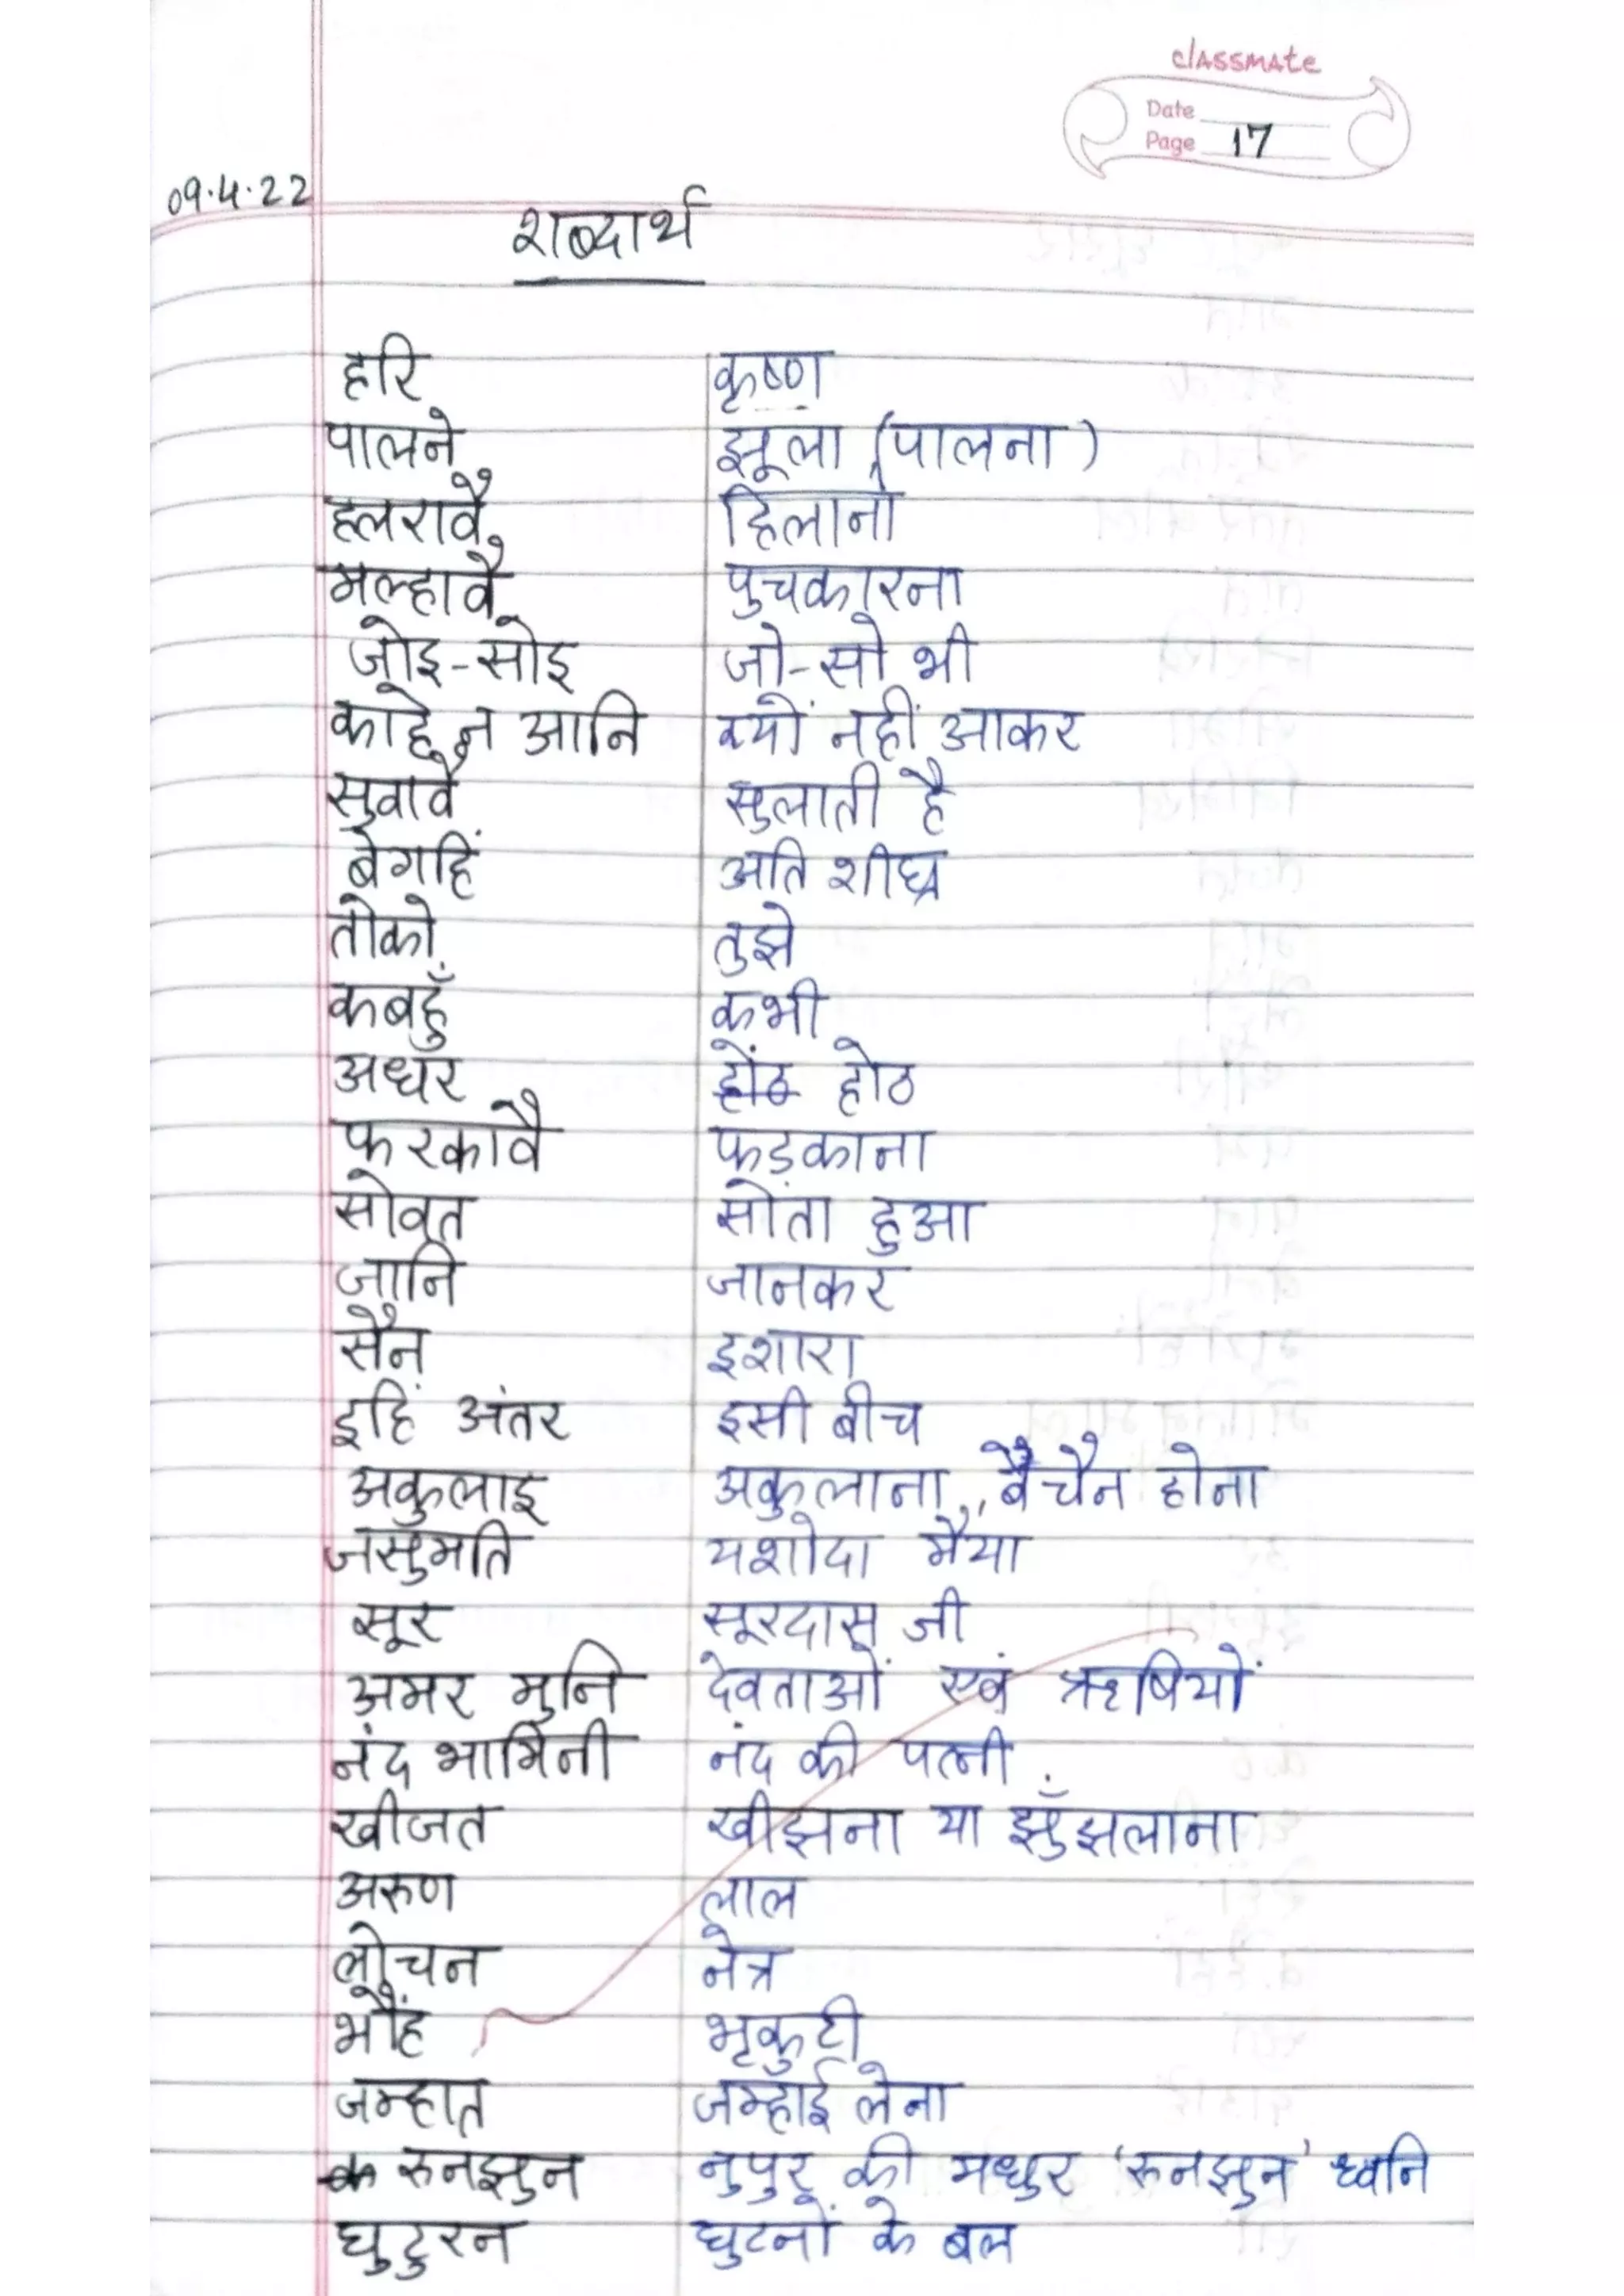 classmate
Date
Page 17
09.4.22
शब्दार्थ
हरि कृष्ण
पालने झूला (पालना)
हलरावै हिलाना
मल्हावै पुचकारना
जोइ-सोइ जो-सो भी
काहे न आनि क्यों नहीं आकर
सुवावै सुलाती है
बेगहिं अति शीघ्र
तोको तुझे
कबहुँ कभी
अधर होंठ होठ
फरकावै फड़काना
सोवत सोता हुआ
जानि जानकर
सैन इशारा
इहिं अंतर इसी बीच
अकुलाइ अकुलाना, बैचैन होना
जसुमति यशोदा मैया
सूर सूरदास जी
अमर मुनि देवताओं एवं ऋषियों
नंद भामिनी नंद की पत्नी
खीजत खीझना या झुँझलाना
अरुण लाल
लोचन नेत्र
भौंह भृकुटी
जम्हात जम्हाई लेना
रुनझुन नुपुर की मधुर 'रुनझुन' ध्वनि
घुटुरन घुटनों के बल